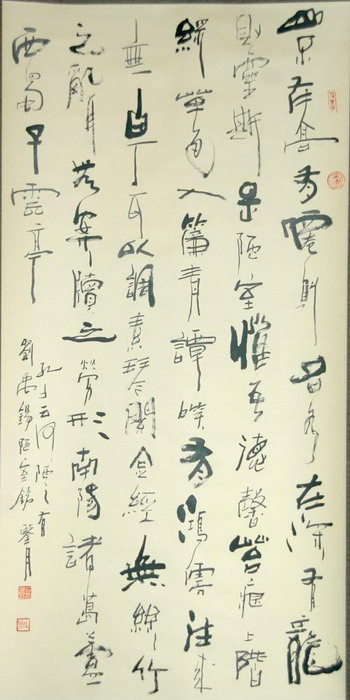 山不在高有仙則名水不在深有龍
則靈斯是陋室惟吾德馨苔痕上階
綠草色入簾青譚笑有鴻儒往來
無白丁可以調素琴閱金經無絲竹
之亂耳無案牘之勞形南陽諸葛廬
西蜀子雲亭
孔子云何陋之有
劉禹錫陋室銘